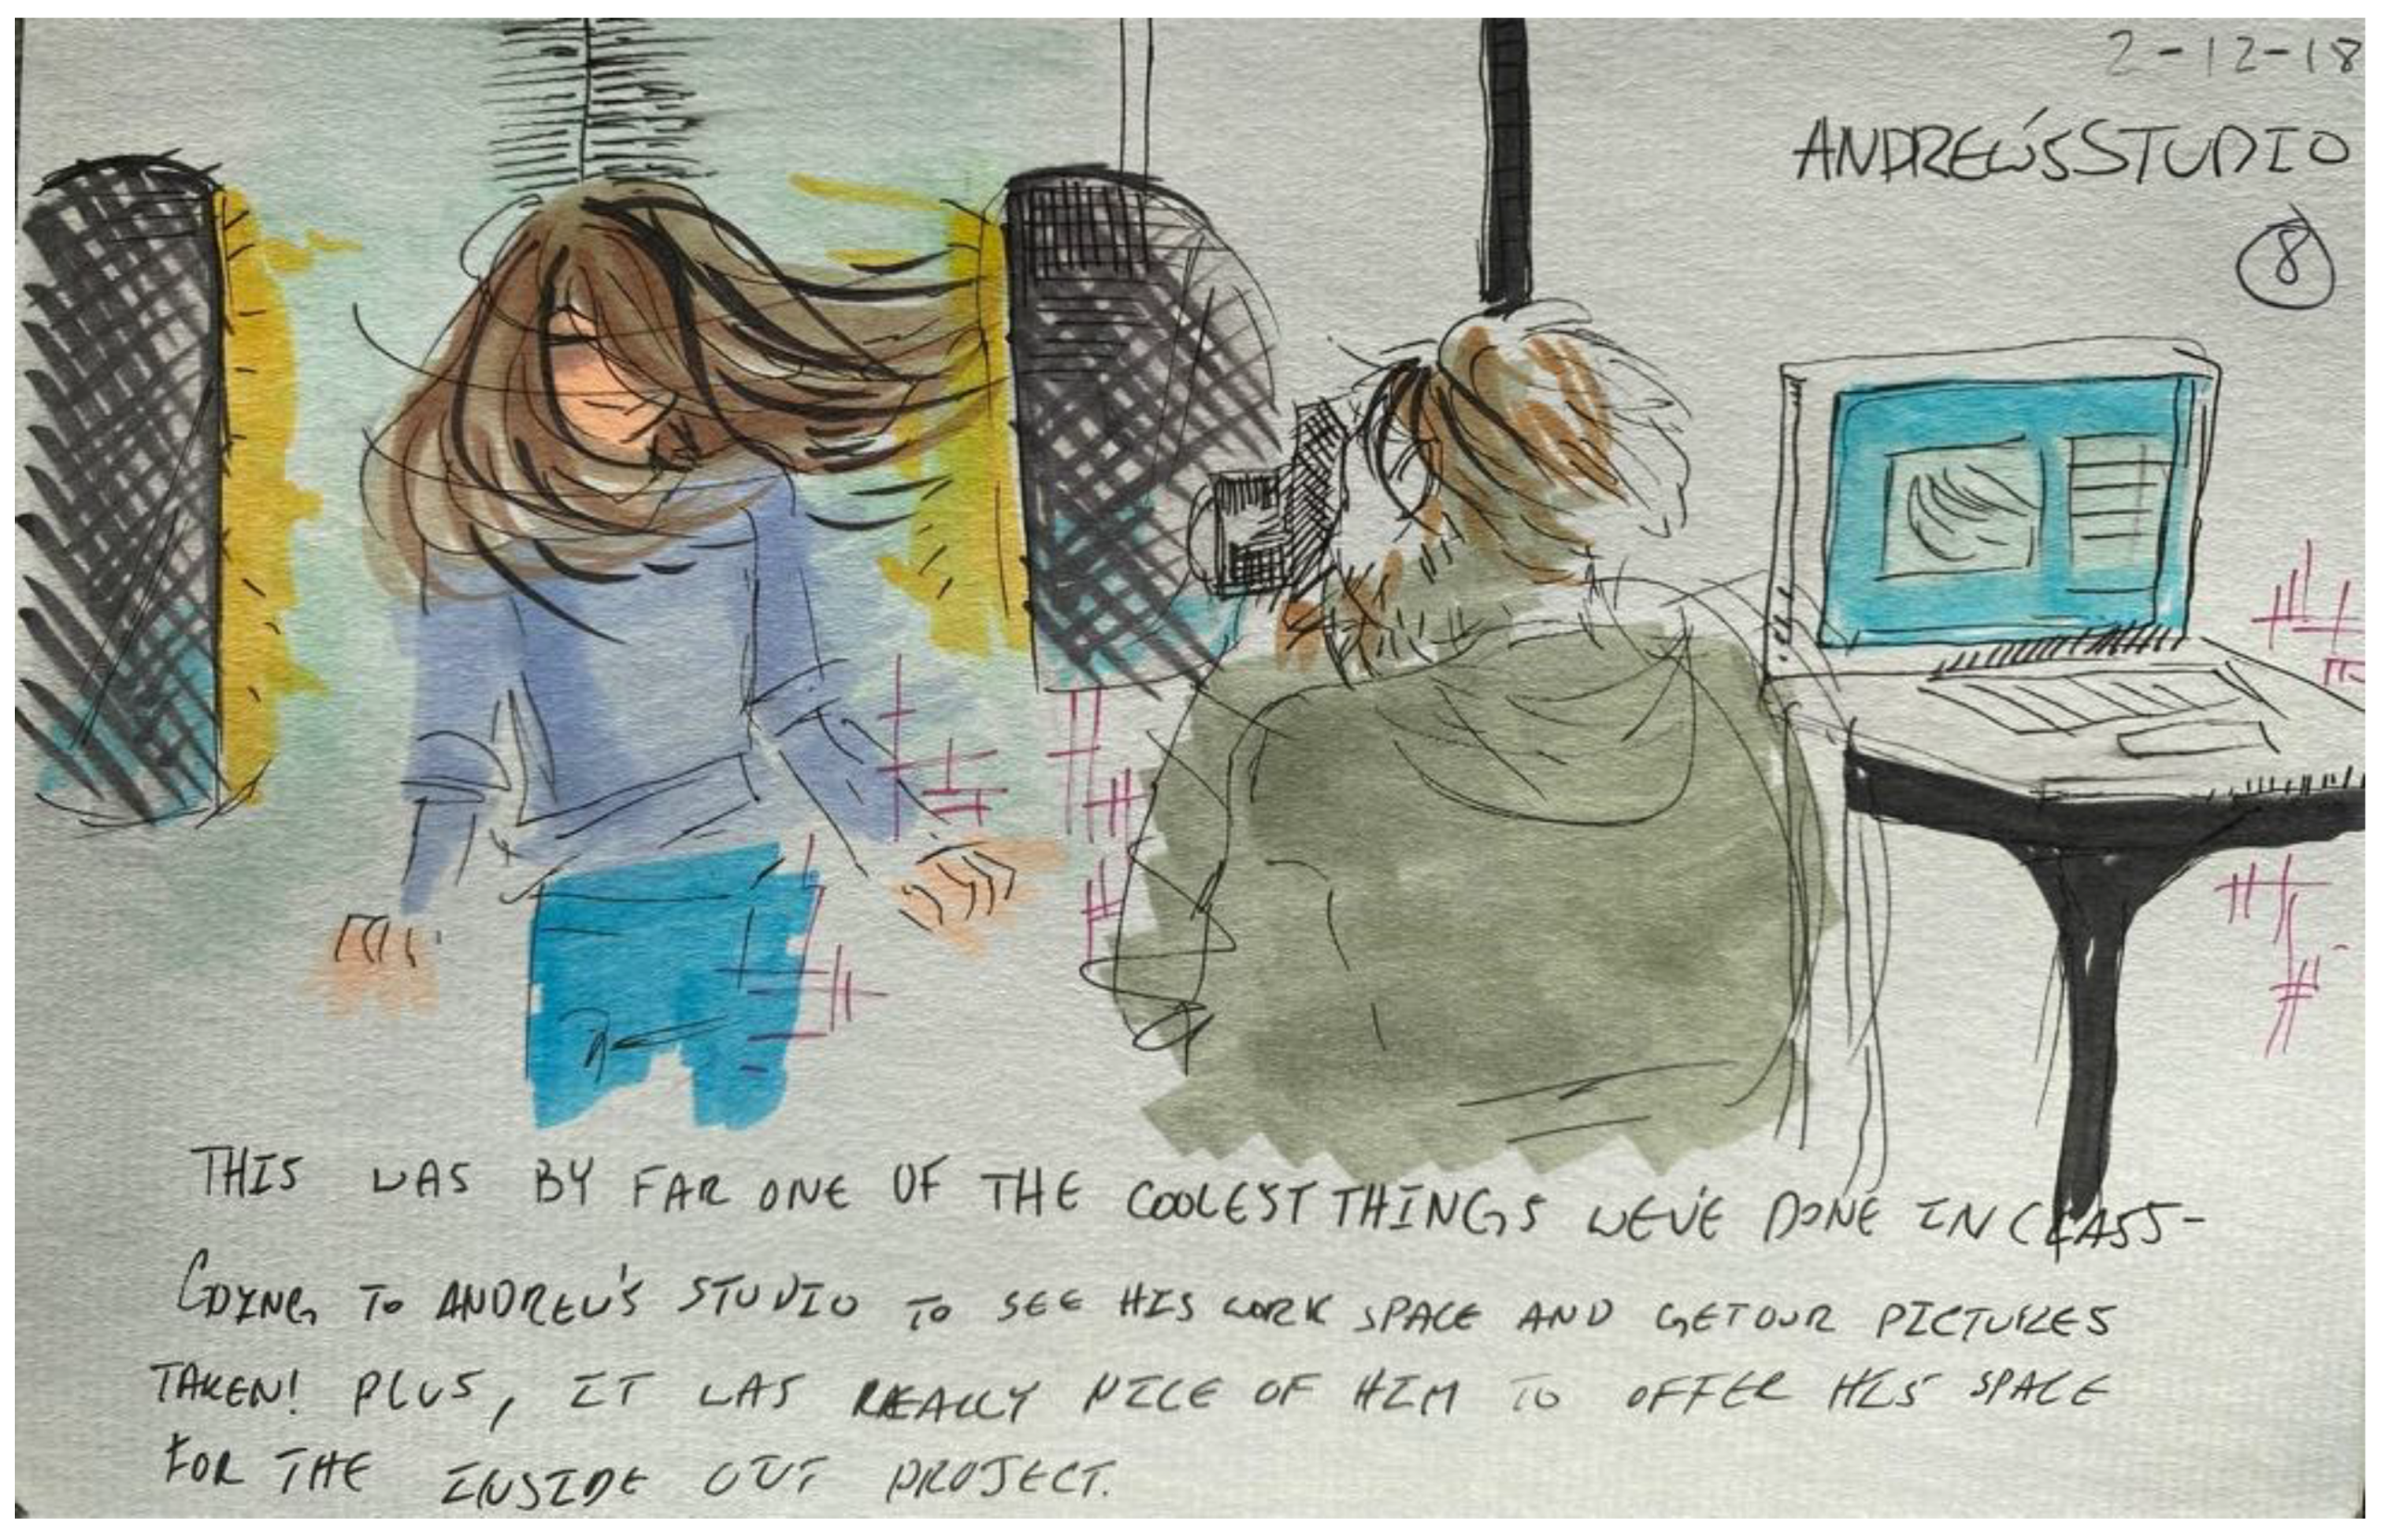 2-12-18
ANDREW'S STUDIO
8
THIS WAS BY FAR ONE OF THE COOLEST THINGS WE'VE DONE IN CLASS-
GOING TO ANDREW'S STUDIO TO SEE HIS WORK SPACE AND GET OUR PICTURES
TAKEN! PLUS, IT WAS REALLY NICE OF HIM TO OFFER HIS SPACE
FOR THE INSIDE OUT PROJECT.